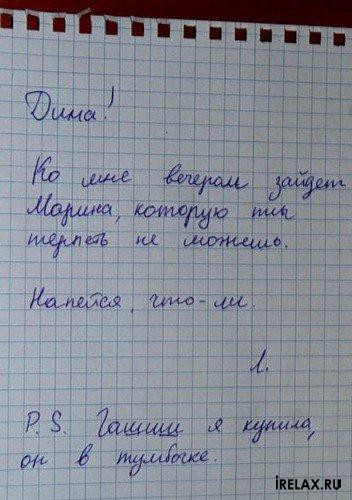 Дима!
Ко мне вечером зайдет
Марина, которую ты
терпеть не можешь.
Напейся, что-ли.
Л.
P.S. Гашиш я купила,
он в тумбочке.
iRELAX.RU